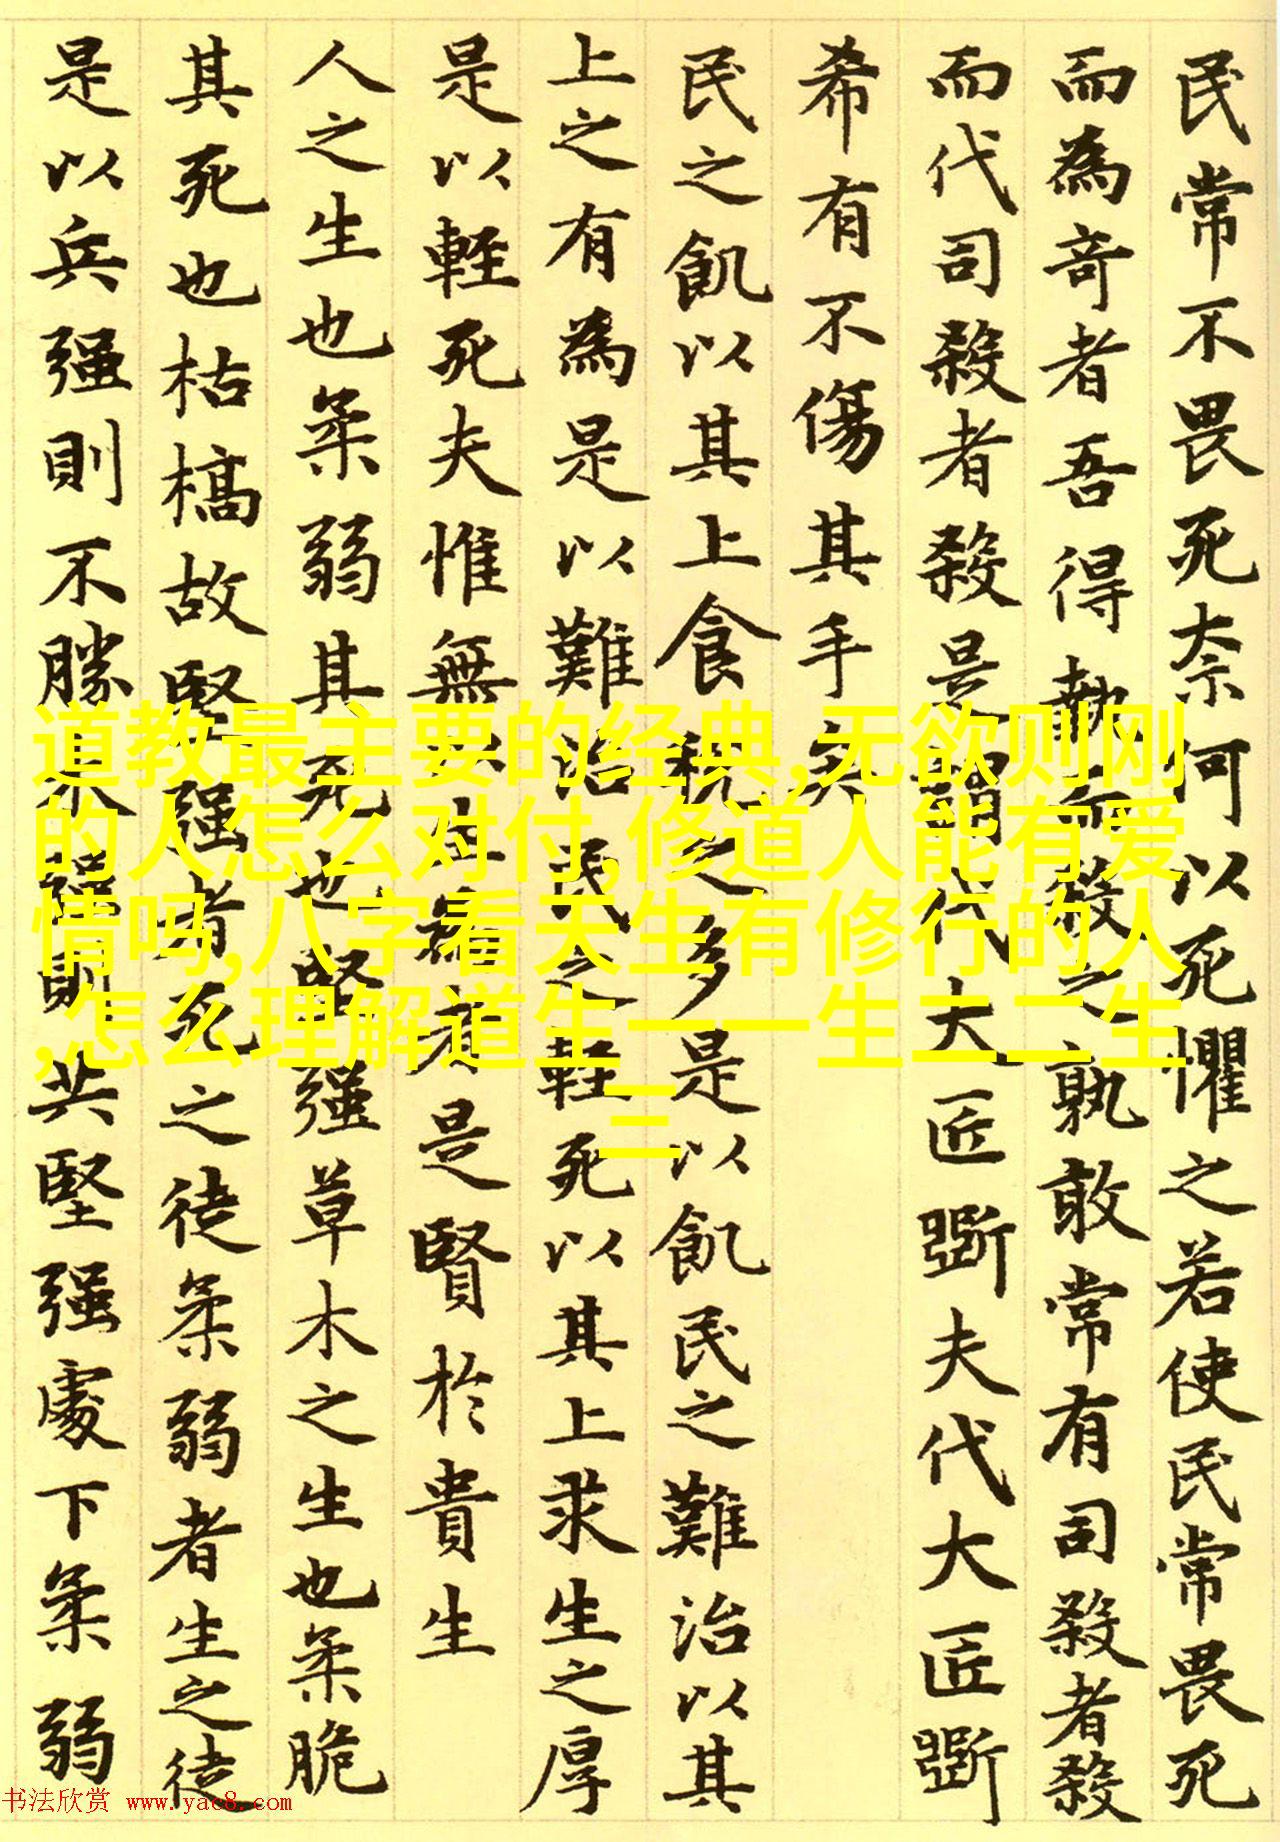 民常不畏死奈何以死懼之若使民常畏死
而為竒者吾得執而殺之孰敢常有司殺者殺
而代司殺者殺是謂代大匠斲夫代大匠斲
希有不傷其手矣
民之飢以其上食稅之多是以飢民之難治以其
上之有為是以難治民之輕死以其上求生之厚
是以輕死夫惟無以生為者是賢於貴生
人之生也柔弱其死也堅强草木之生也柔脆
其死也枯槁故堅强者死之徒柔弱者生之徒
是以兵强則不勝木强則共堅强處下柔弱
道教最主要的经典,无欲则刚
的人怎么对付,修道人能有爱
情吗,八字看天生有修行的人
,怎么理解道生一一生二二生
三
书法欣赏 www.yac8.com